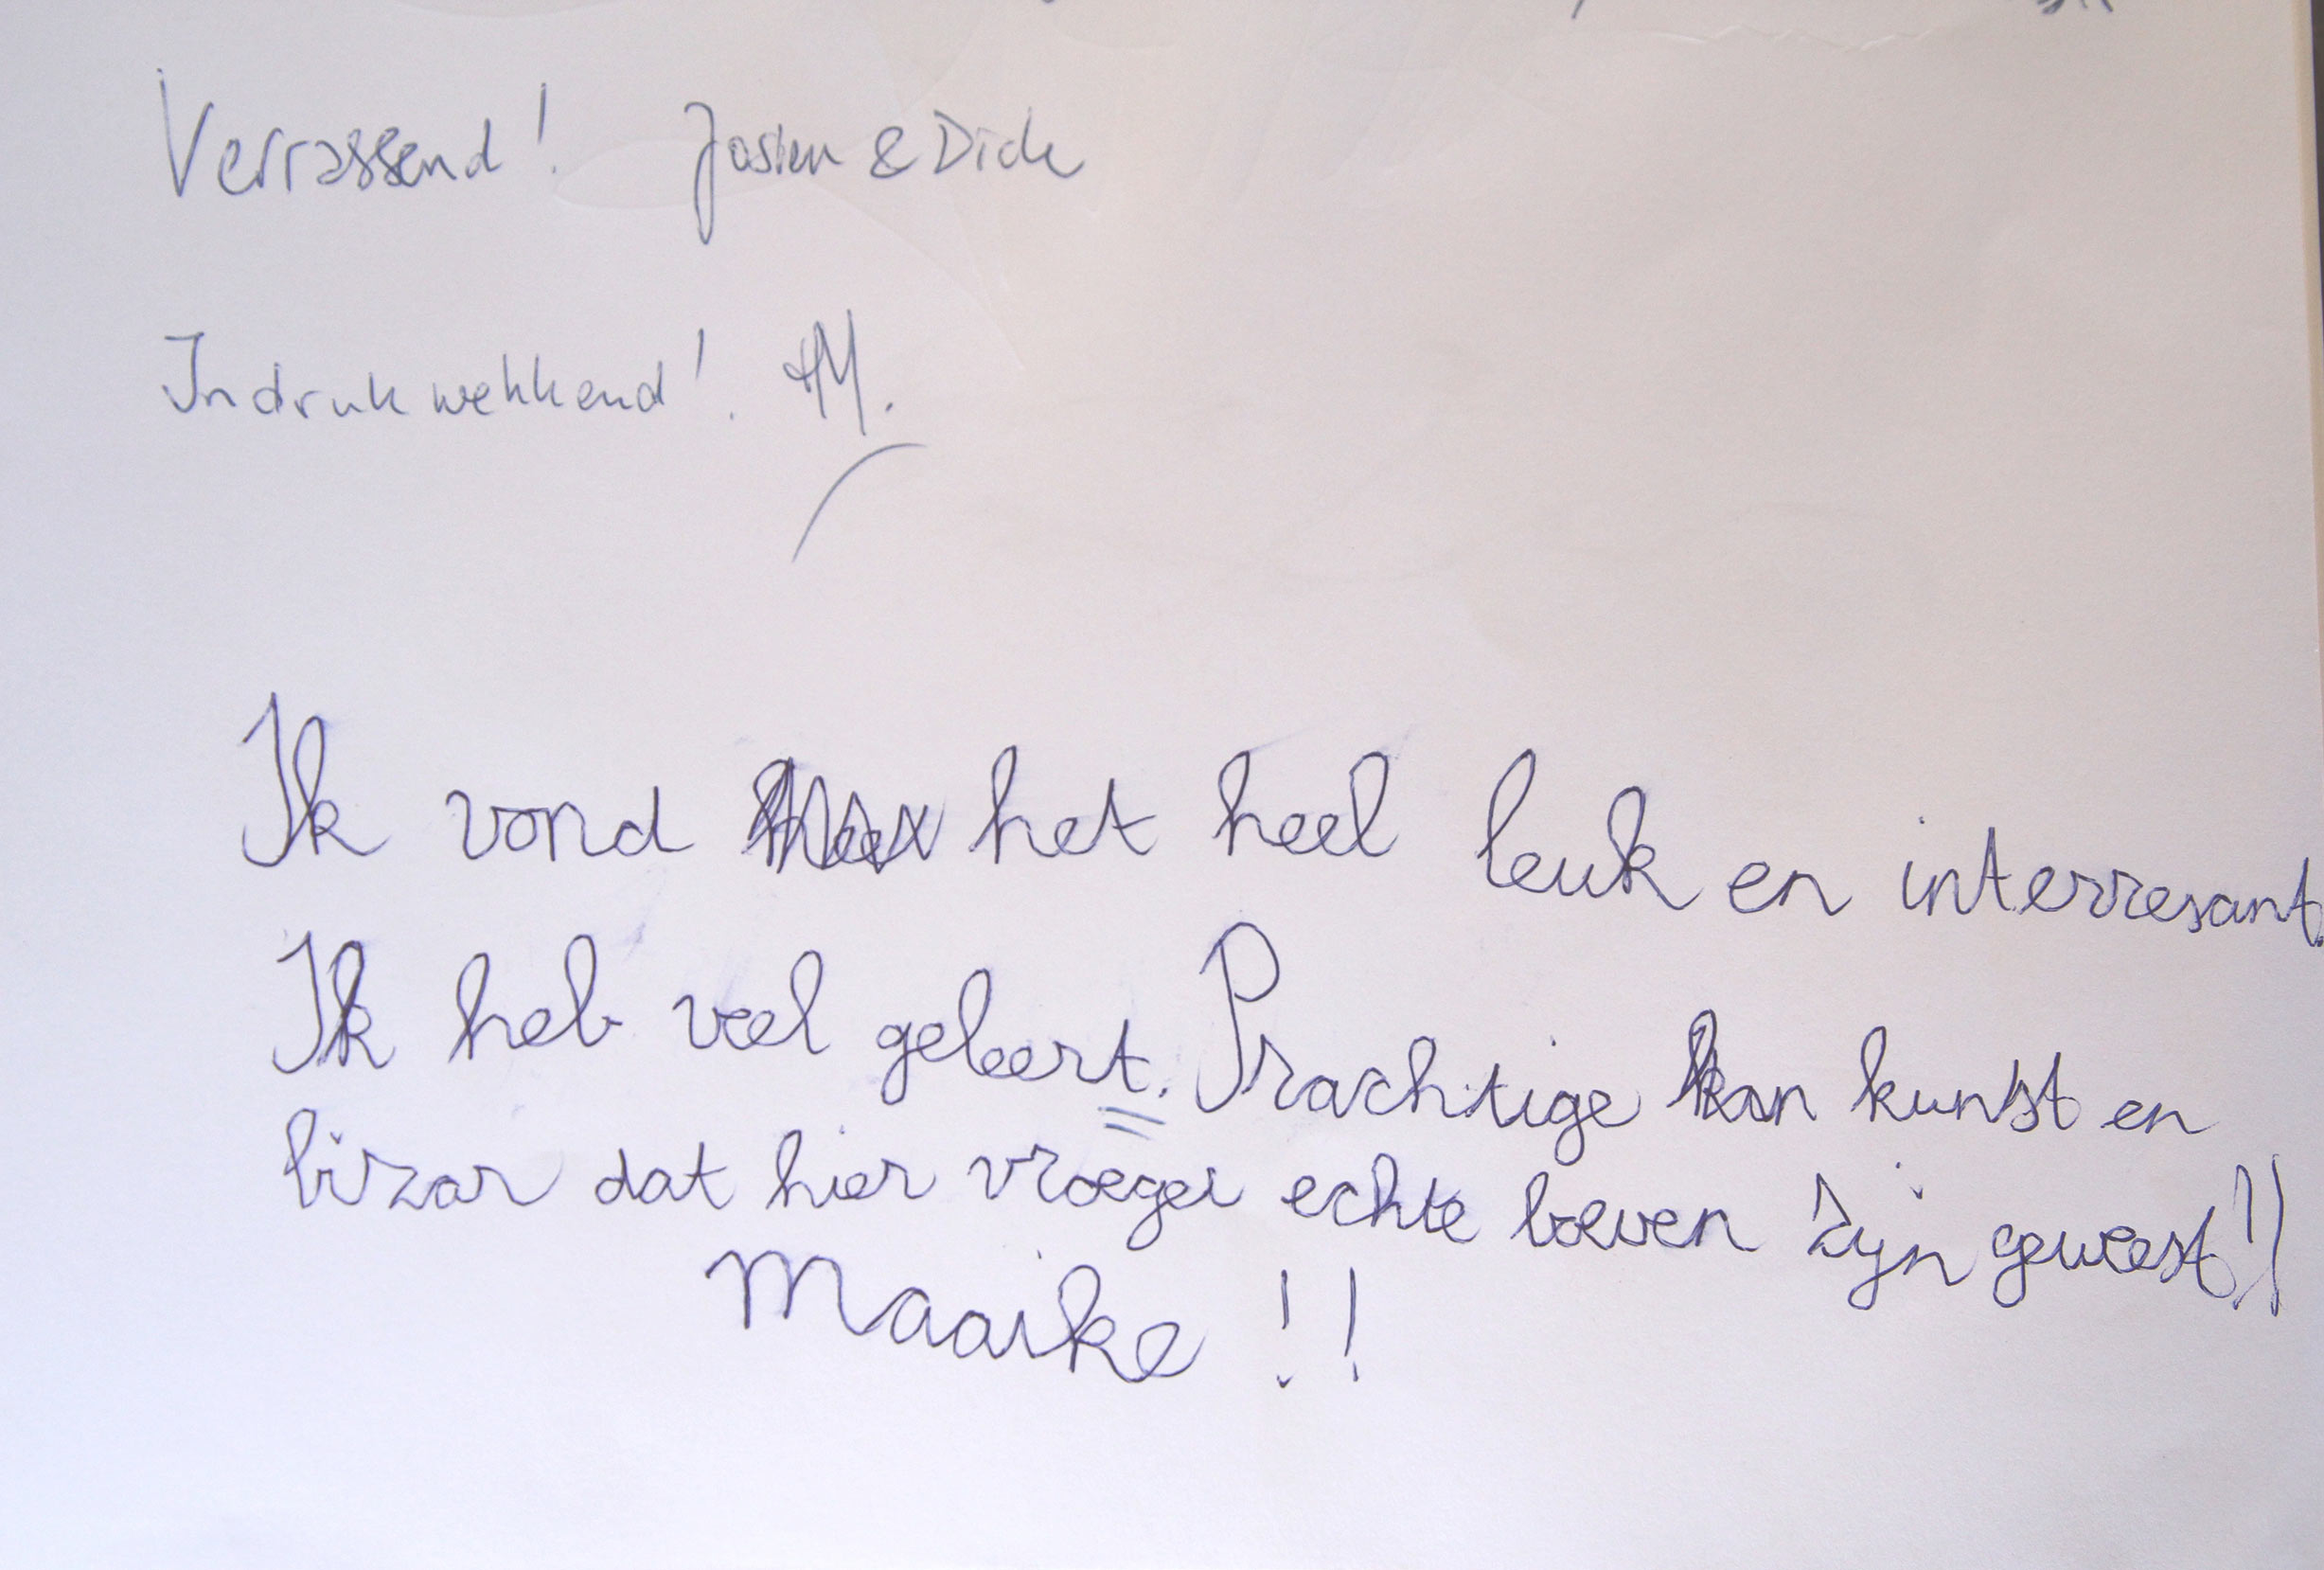 Verrassend! Josien & Dick
Indrukwekkend! HM.
Ik vond het heel leuk en interresant
Ik heb veel geleert. Prachtige kunst en
bizar dat hier vroeger echte boeven zijn geweest!!
Maaike !!